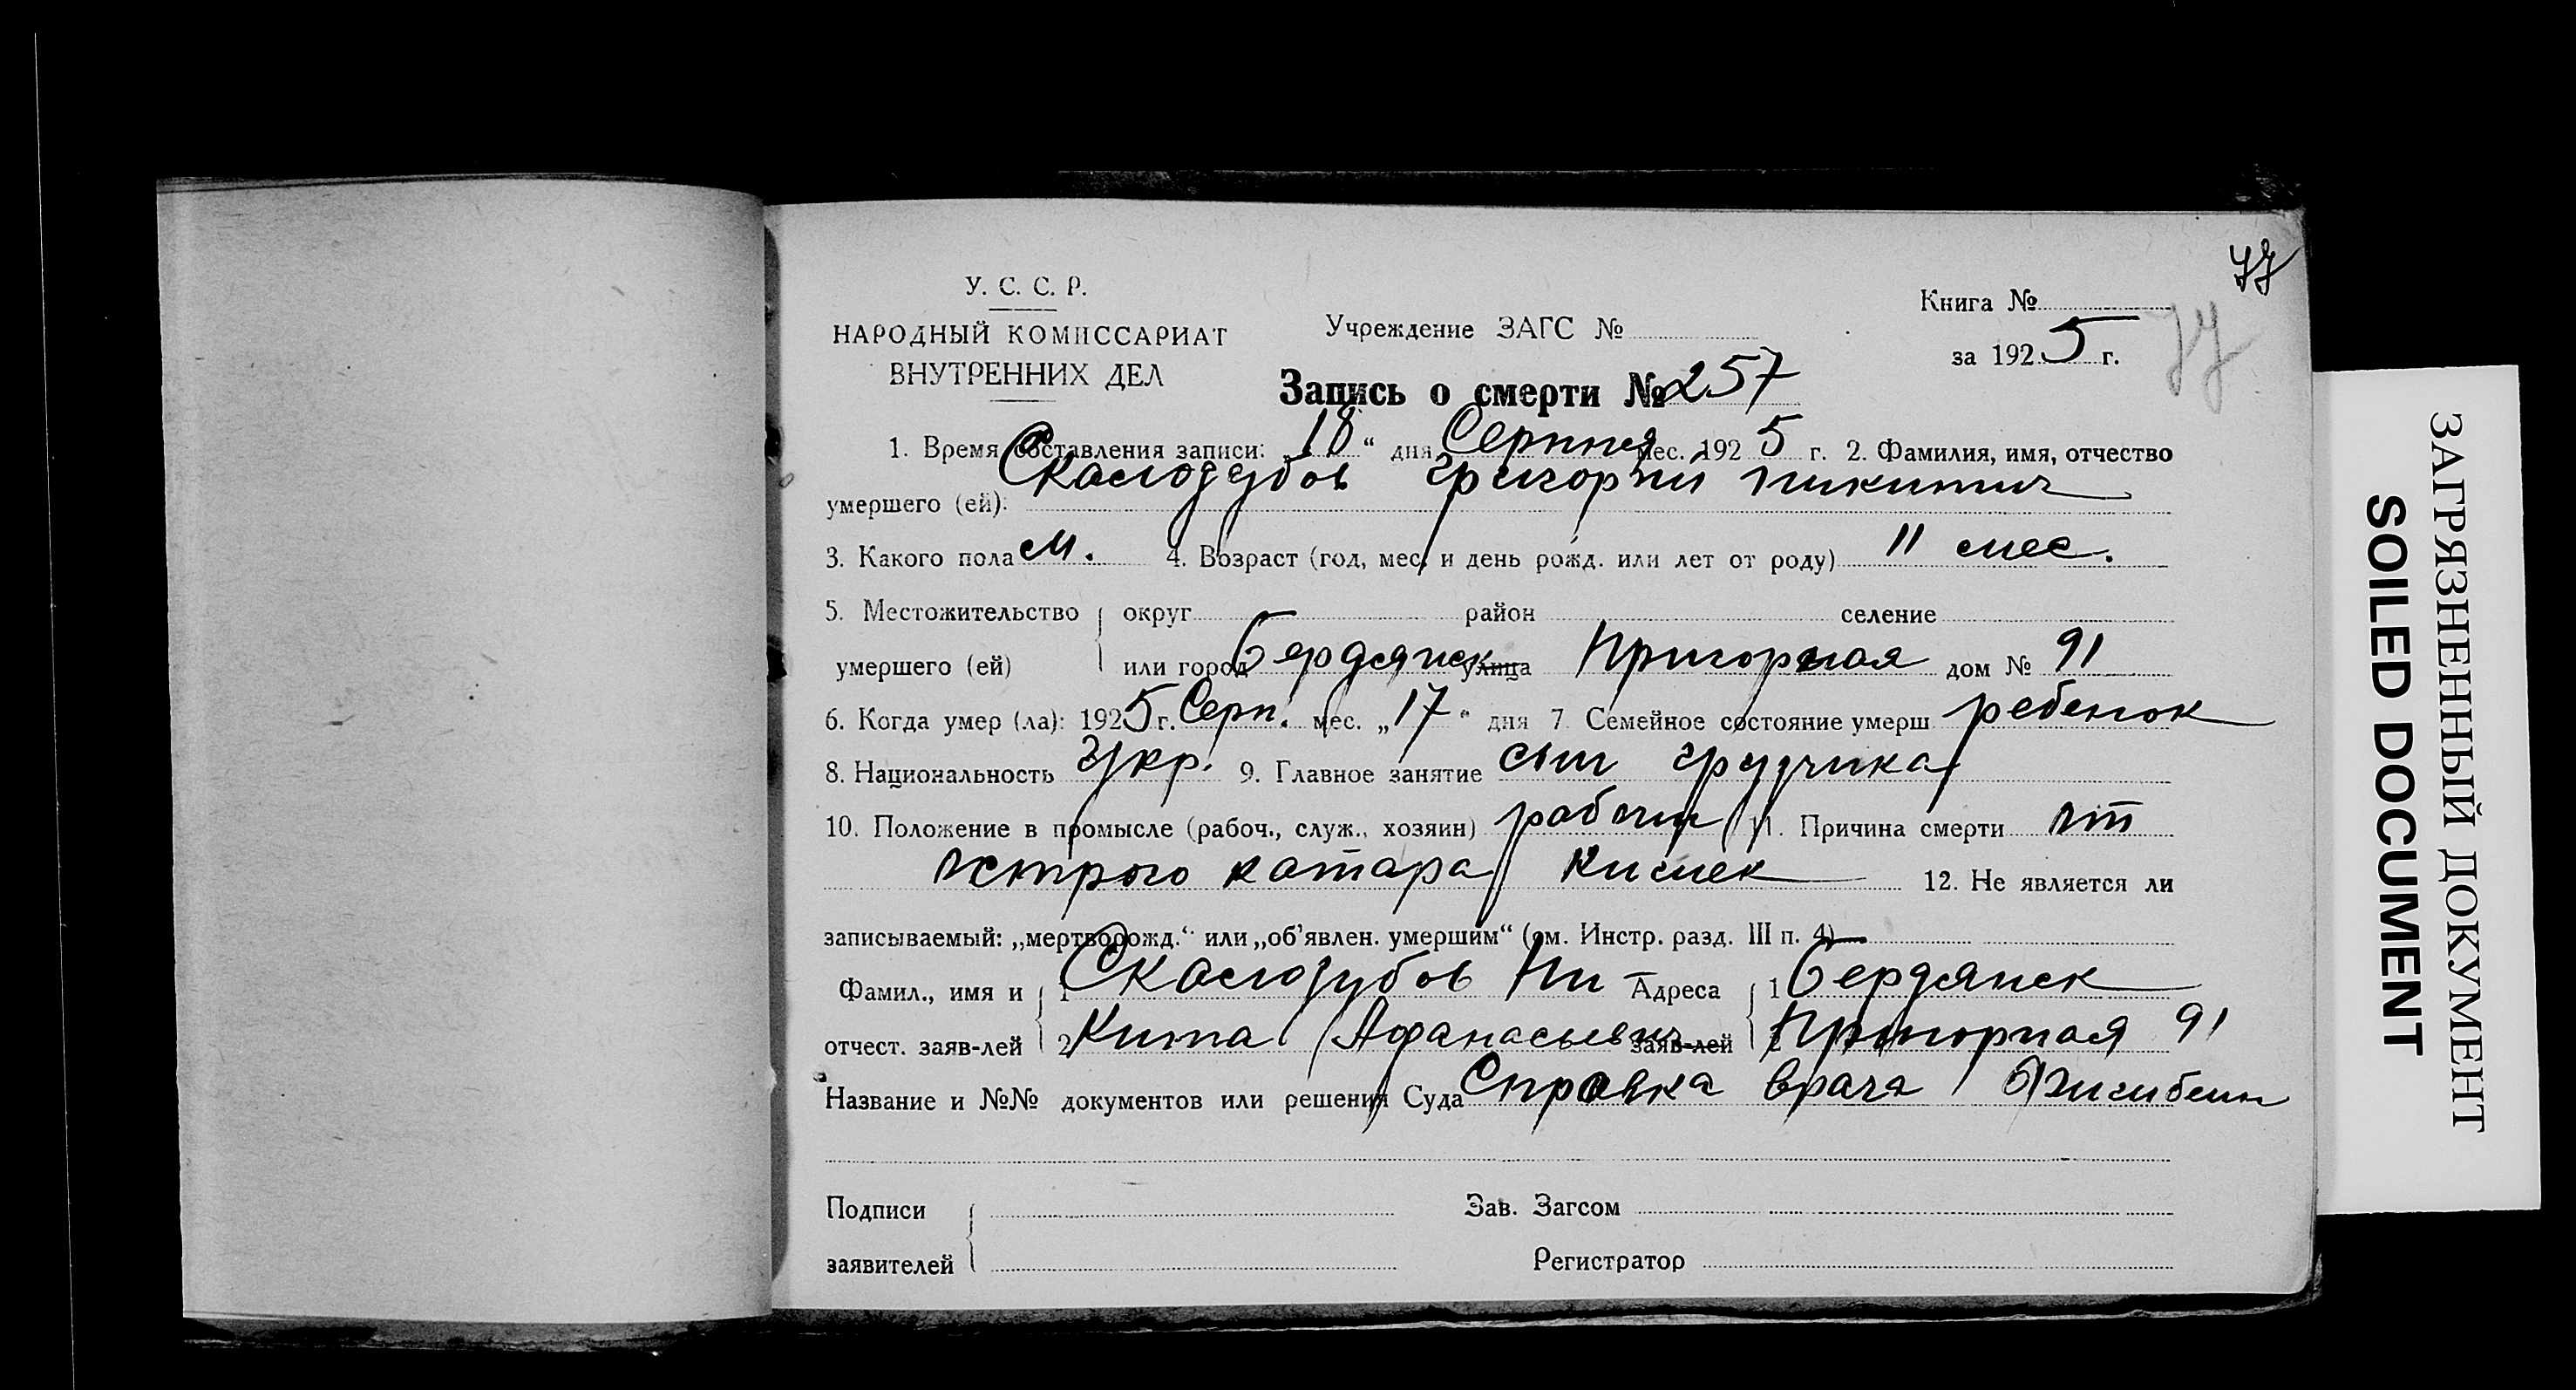 77
У. С. С. Р.
НАРОДНЫЙ КОМИССАРИАТ
ВНУТРЕННИХ ДЕЛ
Учреждение ЗАГС №
Книга №
за 1925 г.
77
Запись о смерти № 257
1. Время составления записи: „18“ дня Серпня мес. 1925 г. 2. Фамилия, имя, отчество
умершего (ей): Скалозубов Григорий Никитич
3. Какого пола м. 4. Возраст (год, мес. и день рожд. или лет от роду) 11 мес.
5. Местожительство округ район селение
умершего (ей) или город Бердянск улица Пригорная дом № 91
6. Когда умер (ла): 1925 г. Серп. мес. „17“ дня 7 Семейное состояние умерш ребенок
8. Национальность Укр. 9. Главное занятие сын грузчика
10. Положение в промысле (рабоч., служ., хозяин) рабочий 11. Причина смерти от
острого катара кишек 12. Не является ли
записываемый: „мертворожд.“ или „об’явлен. умершим“ (см. Инстр. разд. III п. 4) —
Фамил., имя и 1 Скалозубов Ни Адреса 1 Бердянск
отчест. заяв-лей 2 кита Афанасьевич заяв-лей 2 Пригорная 91
Название и №№ документов или решения Суда Справка врача
Подписи Зав. Загсом
заявителей Регистратор
ЗАГРЯЗНЕННЫЙ ДОКУМЕНТ
SOILED DOCUMENT